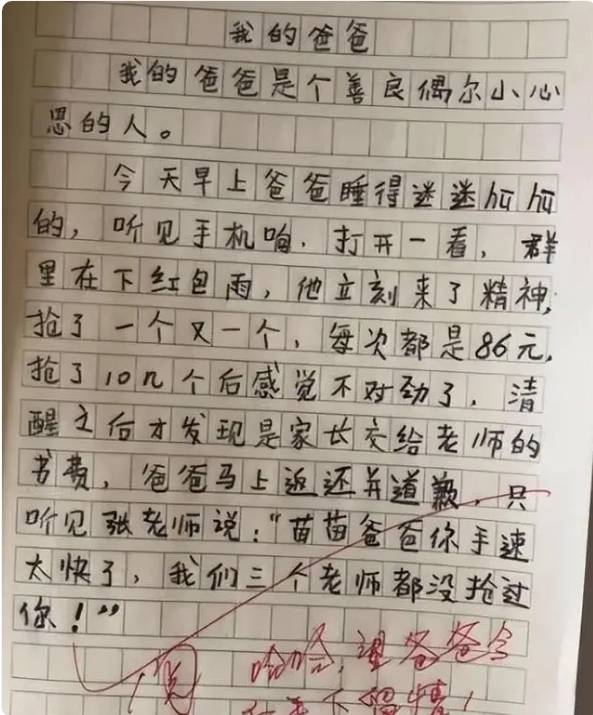 我的爸爸
我的爸爸是个善良偶尔小心
思的人。
今天早上爸爸睡得迷迷hūhū
的，听见手机响，打开一看，群
里在下红包雨，他立刻来了精神，
抢了一个又一个，每次都是86元，
抢了10几个后感觉不对劲了，清
醒之后才发现是家长交给老师的
书费，爸爸马上返还并道歉，只
听见张老师说："苗苗爸爸你手速
太快了，我们三个老师都没抢过
你！"
阅 哈哈，望爸爸今